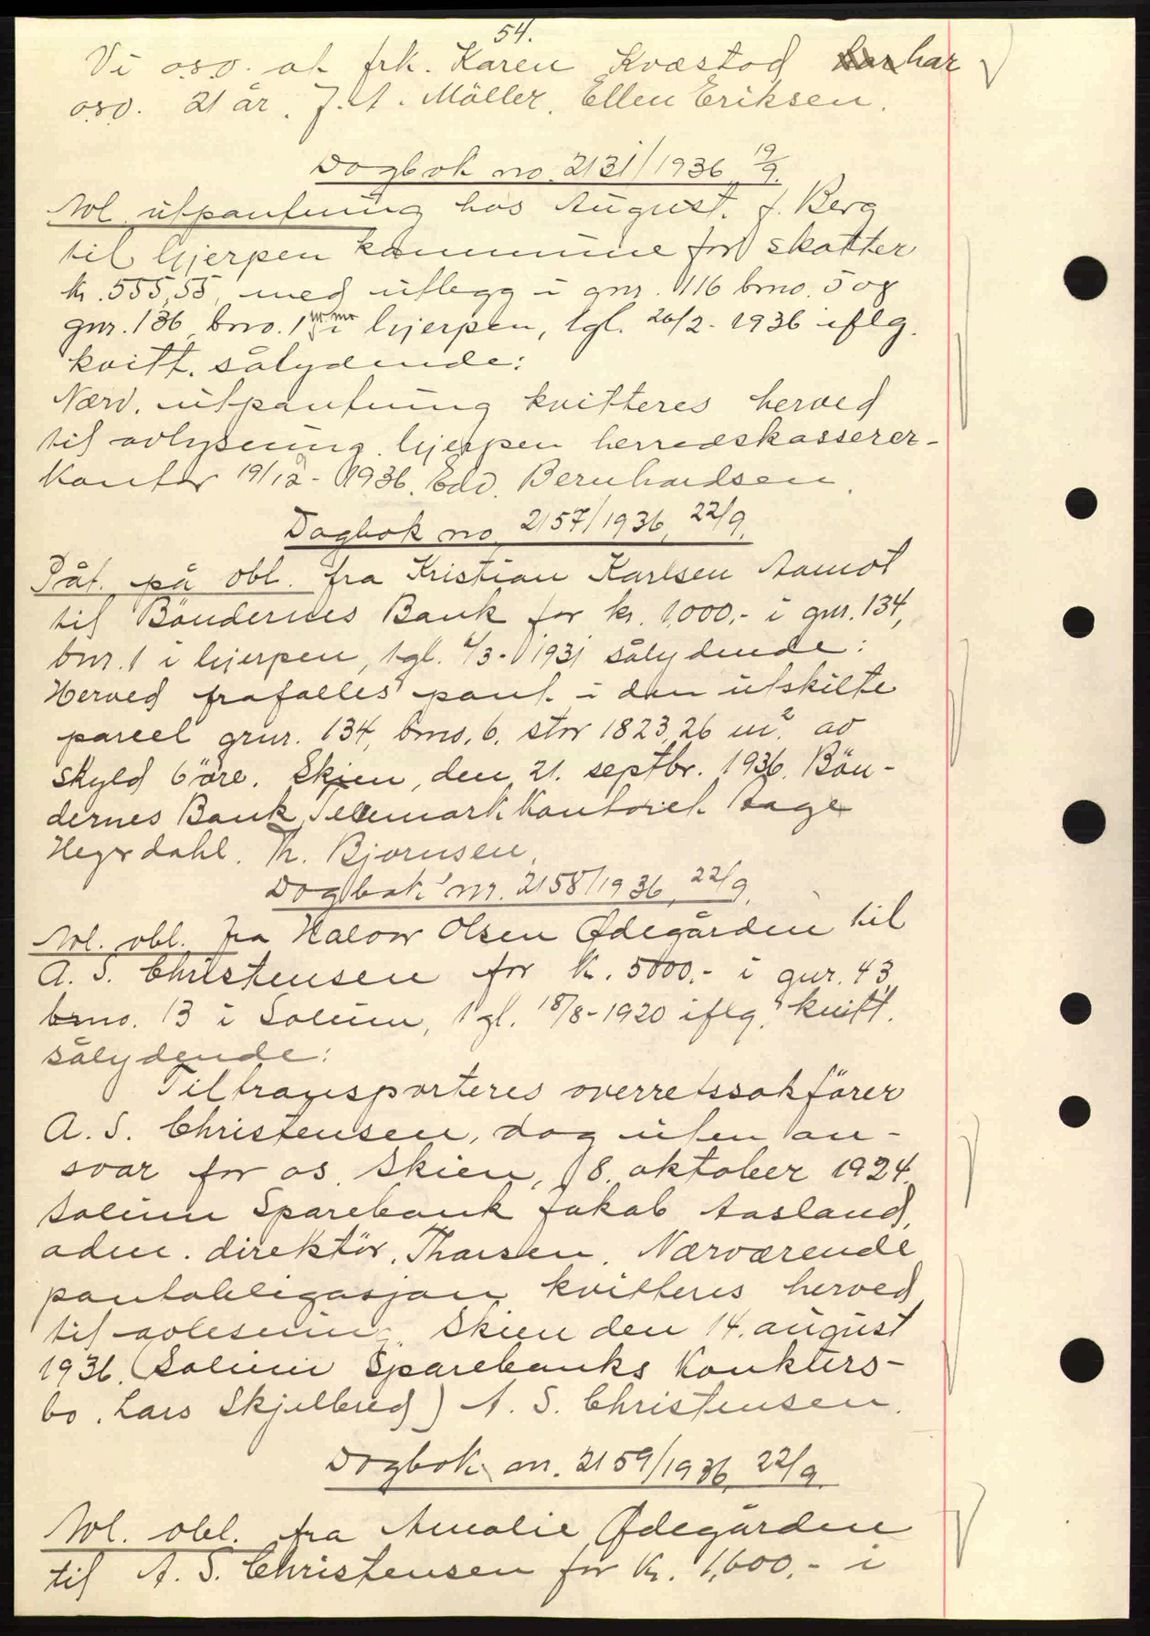 54.
Vi o.s.o. at frk. Karen Kvæstad har
o.s.o. 21 år. J. A. Möller. Ellen Eriksen.
Dagbok no. 2131/1936 19/9.
Avl. utpantning hos August. J. Berg
til Gjerpen kommune for skatter
kr. 555,55, med utlegg i gnr. 116 brno. 5 og
gnr. 136 brno. 1 i Gjerpen, tgl. 26/2-1936 iflg.
kvitt. sålydende:
Nærv. utpantning kvitteres herved
til avlysning. Gjerpen herredskasserer-
kontor 19/12-1936. Edv. Bernhardsen.
Dagbok no. 2157/1936, 22/9.
Påt. på obl. fra Kristian Karlsen Aamot
til Böndernes Bank for kr. 1,000.- i gnr. 134,
bnr. 1 i Gjerpen, tgl. /3-1931 sålydende:
Herved frafalles pant i den utskilte
parcel grnr. 134, brno. 6. stor 1823,26 m². av
skyld 6 öre. Skien, den 21. septbr. 1936. Bön-
dernes Bank, Telemark Kontoret Aage
Heyerdahl. Th. Bjornsen.
Dagbok nr. 2158/1936, 22/9.
Avl. obl. fra Halvor Olsen Ødegården til
A. S. Christensen for kr. 5000.- i gnr. 43,
brno. 13 i Solum, tgl. 18/8-1920 iflg. kvitt.
sålydende:
Tiltransporteres overretssakförer
A. S. Christensen, dog uten an-
svar for os. Skien, 8. oktober 1924.
Solum Sparebank Jakob Aasland,
adm. direktör. Thorsen. Nærværende
pantobligasjon kvitteres herved
til avlesning. Skien den 14. august
1936. (Solum Sparebanks Konkurs-
bo. Lars Skjelbred) A. S. Christensen.
Dagbok nr. 2159/1936 22/9.
Avl. obl. fra Amalie Ødegården
til A. S. Christensen for kr. 1,600.- i